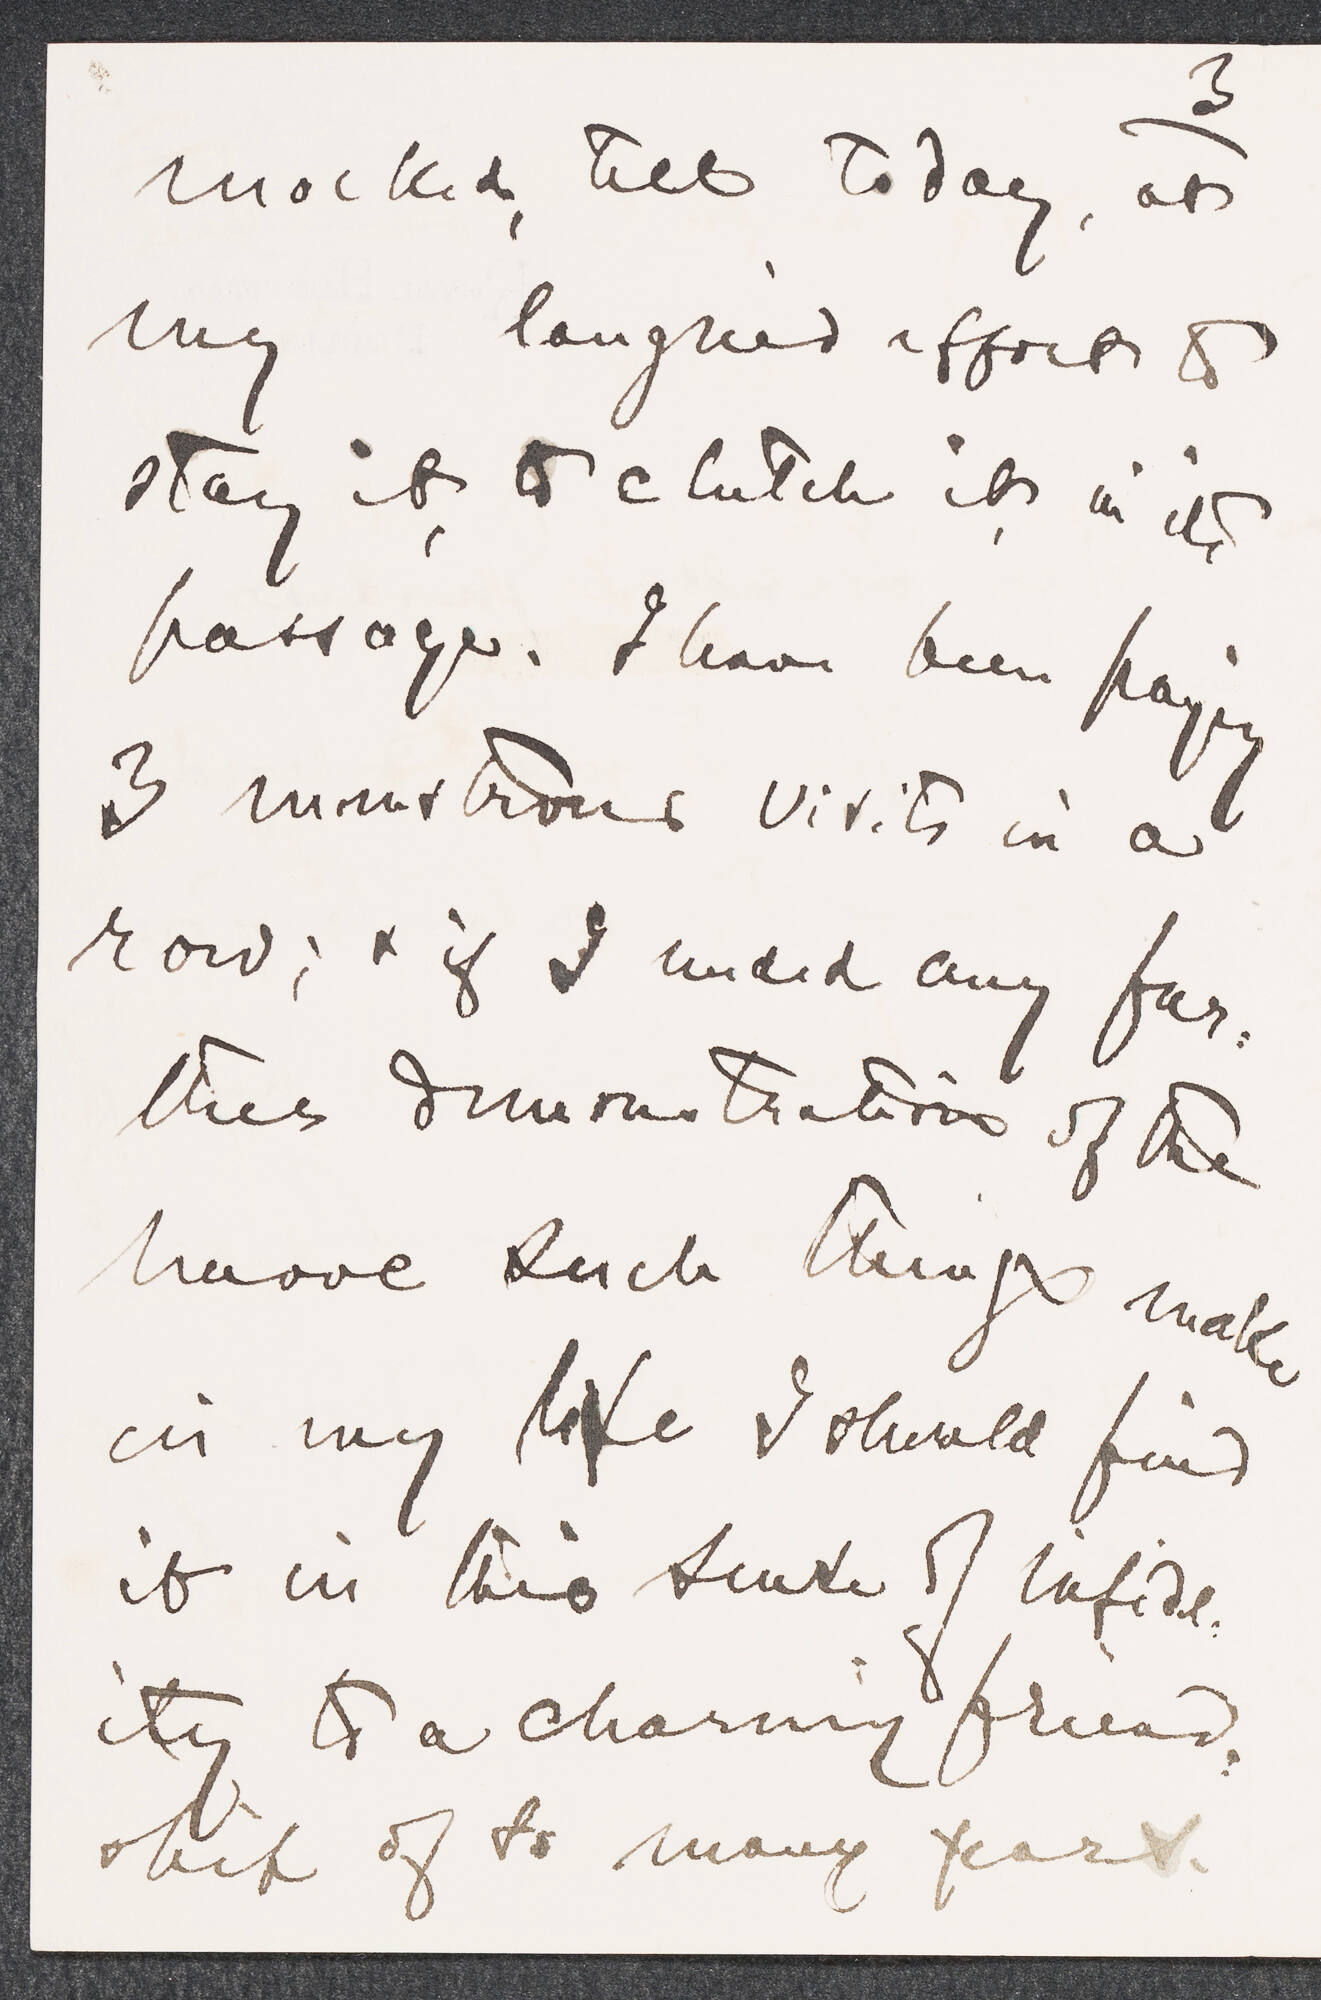 3
mocked, till today, at
my languid effort to
stay it, to clutch it, in its
passage. I have been paying
3 monstrous visits in a
row; & if I needed any fur:
ther demonstration of the
havoc such things make
in my life I should find
it in this sense of infidel:
ity to a charming friend:
ship of so many years.